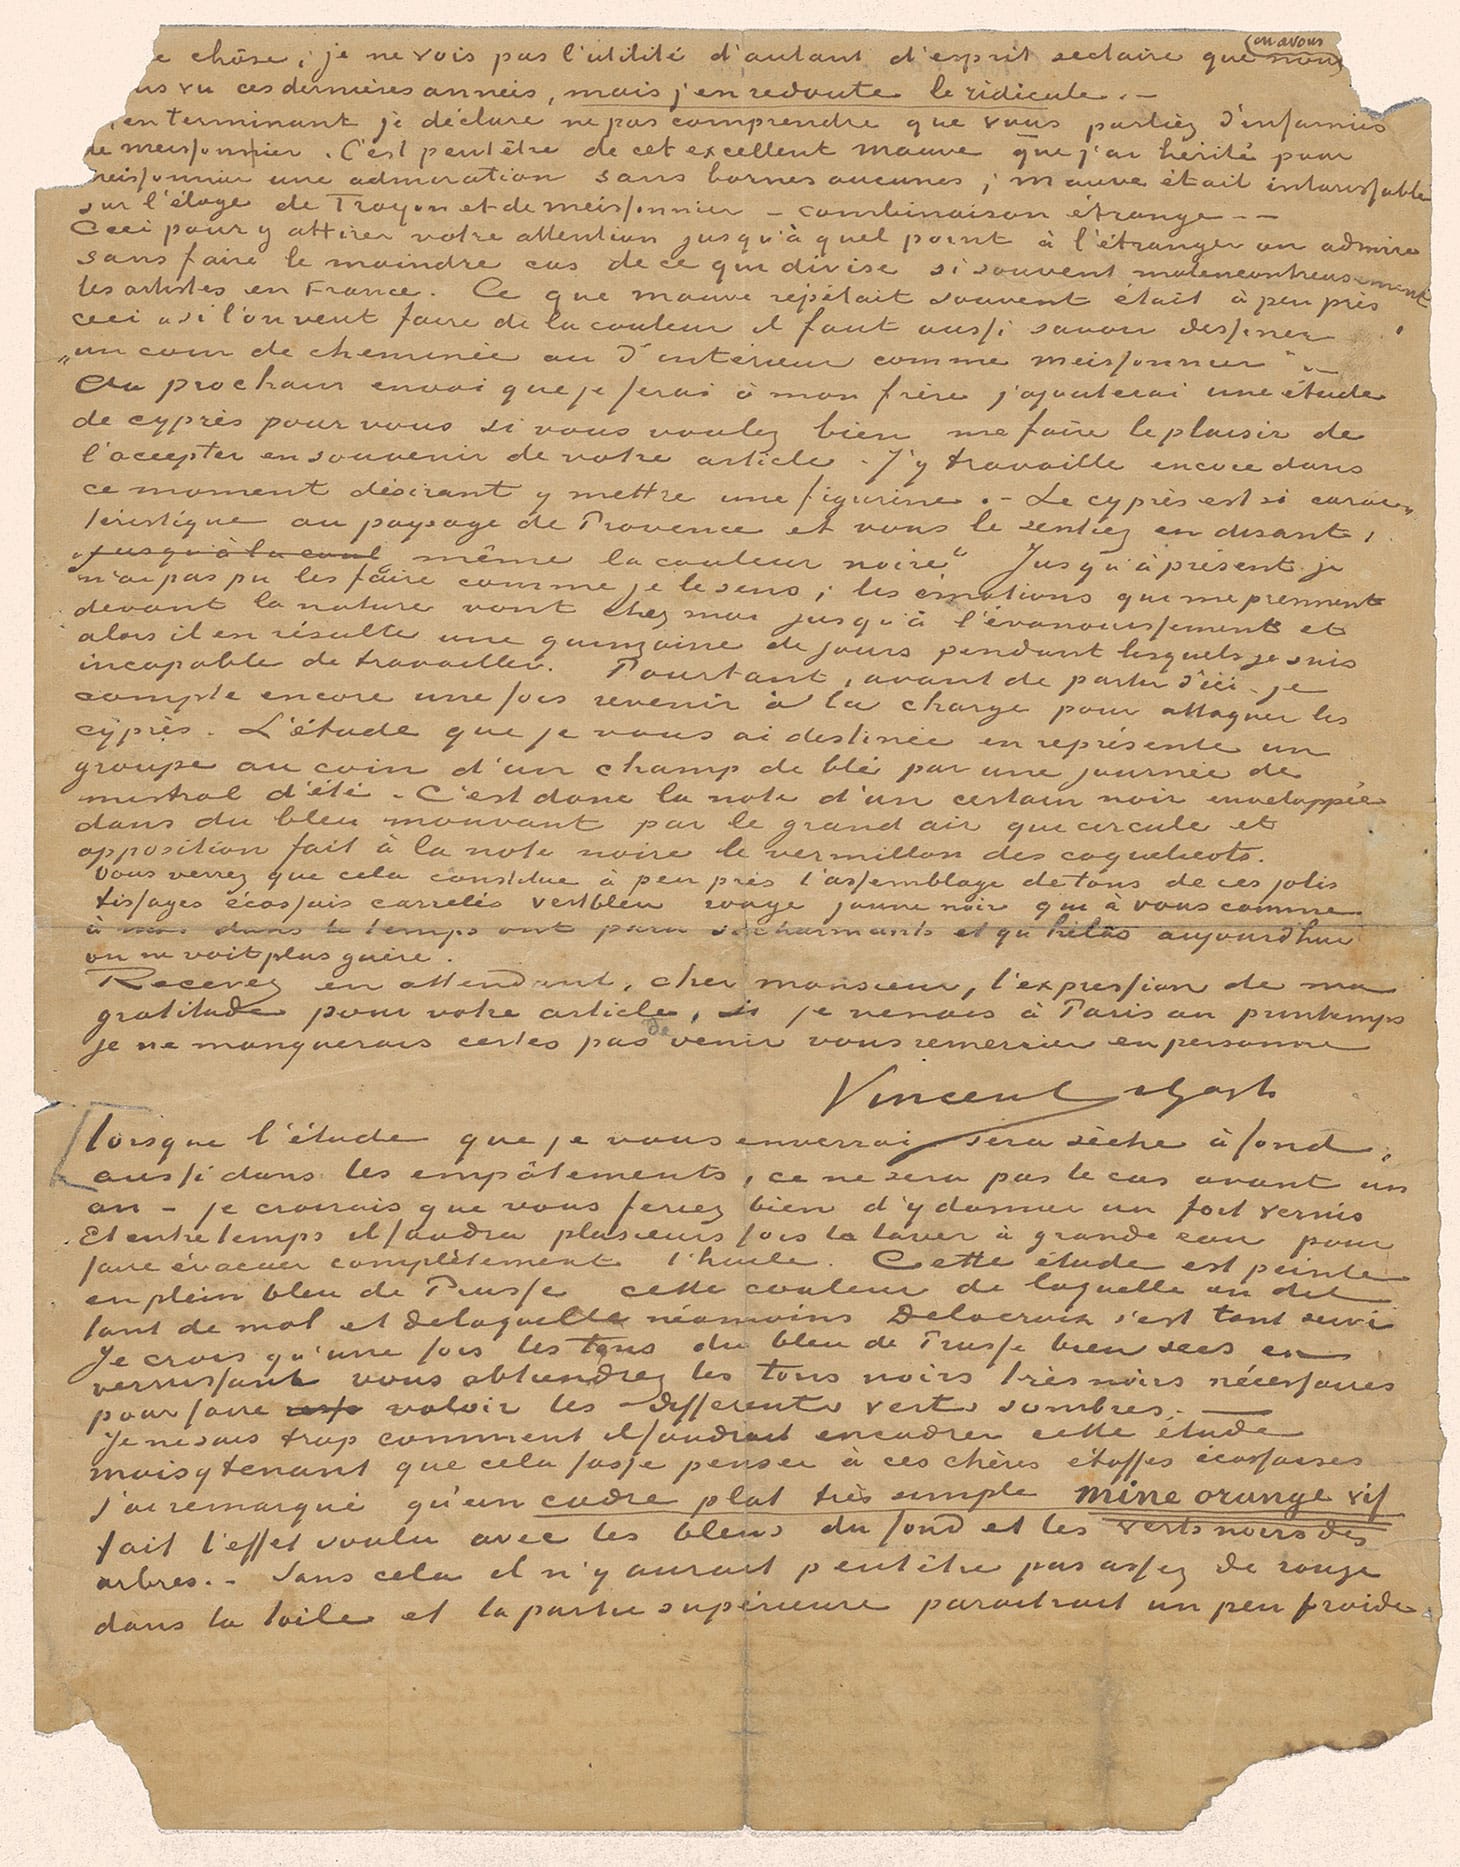 (on avous
e chôse; je ne vois pas l'utilité d'autant d'esprit sectaire que nous
us vu ces dernières années, mais j'en redoute le ridicule. –
en terminant je déclare ne pas comprendre que vous parliez d'infamies
de meissonnier. C'est peutêtre de cet excellent Mauve que j'ai hérité pour
meissonnier une admiration sans bornes aucunes; Mauve était intarissable
sur l'éloge de Troyon et de meissonnier – combinaison étrange – –
Ceci pour y attirer votre attention jusqu'à quel point à l'étranger on admire
sans faire le moindre cas de ce qui divise si souvent malencontreusement
les artistes en France. Ce que mauve répétait souvent était à peu près
ceci „si l'on veut faire de la couleur il faut aussi savoir dessiner
„un coin de cheminée ou d'intérieur comme meissonnier" –
Au prochain envoi que je ferai à mon frère j'ajouterai une étude
de cyprès pour vous si vous voulez bien me faire le plaisir de
l'accepter en souvenir de votre article. J'y travaille encore dans
ce moment désirant y mettre une figurine. – Le cyprès est si carac„
téristique au paysage de Provence et vous le sentiez en disant,
„jusqu'à la coul même la couleur noire" Jusqu'à présent je
n'ai pas pu les faire comme je le sens; les émotions qui me prennent
devant la nature vont chez moi jusqu'à l'évanouissement et
alors il en résulte une quinzaine de jours pendant lesquels je suis
incapable de travailler. Pourtant, avant de partir d'ici je
compte encore une fois revenir à la charge pour attaquer les
cyprès. L'étude que je vous ai destinée en représente un
groupe au coin d'un champ de blé par une journée de
mistral d'été. C'est donc la note d'un certain noir enveloppée
dans du bleu mouvant par le grand air qui circule et
opposition fait à la note noire le vermillon des coquelicots.
Vous verrez que cela constitue à peu près l'assemblage de tons de ces jolis
tissages écossais carrelés vert bleu rouge jaune noir qui à vous comme
à moi dans le temps ont paru si charmants et qu'hélas aujourd'hui
on ne voit plus guère.
Recevez en attendant, cher monsieur, l'expression de ma
gratitude pour votre article, si je venais à Paris au printemps
je ne manquerais certes pas de venir vous remercier en personne
Vincent v. Gogh
Lorsque l'étude que je vous enverrai sera sèche à fond,
aussi dans les empâtements, ce ne sera pas le cas avant un
an – je croirais que vous feriez bien d'y donner un fort vernis
Et entretemps il faudra plusieurs fois la laver à grande eau pour
faire évacuer complètement l'huile. Cette étude est peinte
en plein bleu de Prusse cette couleur de laquelle on dit
tant de mal et de laquelle néamoins Delacroix s'est tant servi
Je crois qu'une fois les tons du bleu de Prusse bien secs en
vernissant vous obtiendrez les tons noirs très noirs nécessaires
pour faire valoir les différents verts sombres. –
Je ne sais trop comment il faudrait encadrer cette étude
mais y tenant que cela fasse penser à ces chères étoffes écossaises
j'ai remarqué qu'un cadre plat très simple mine orange vif
fait l'effet voulu avec les bleus du fond et les verts noirs des
arbres. – Sans cela il n'y aurait peutêtre pas assez de rouge
dans la toile et la partie supérieure paraitrait un peu froide.